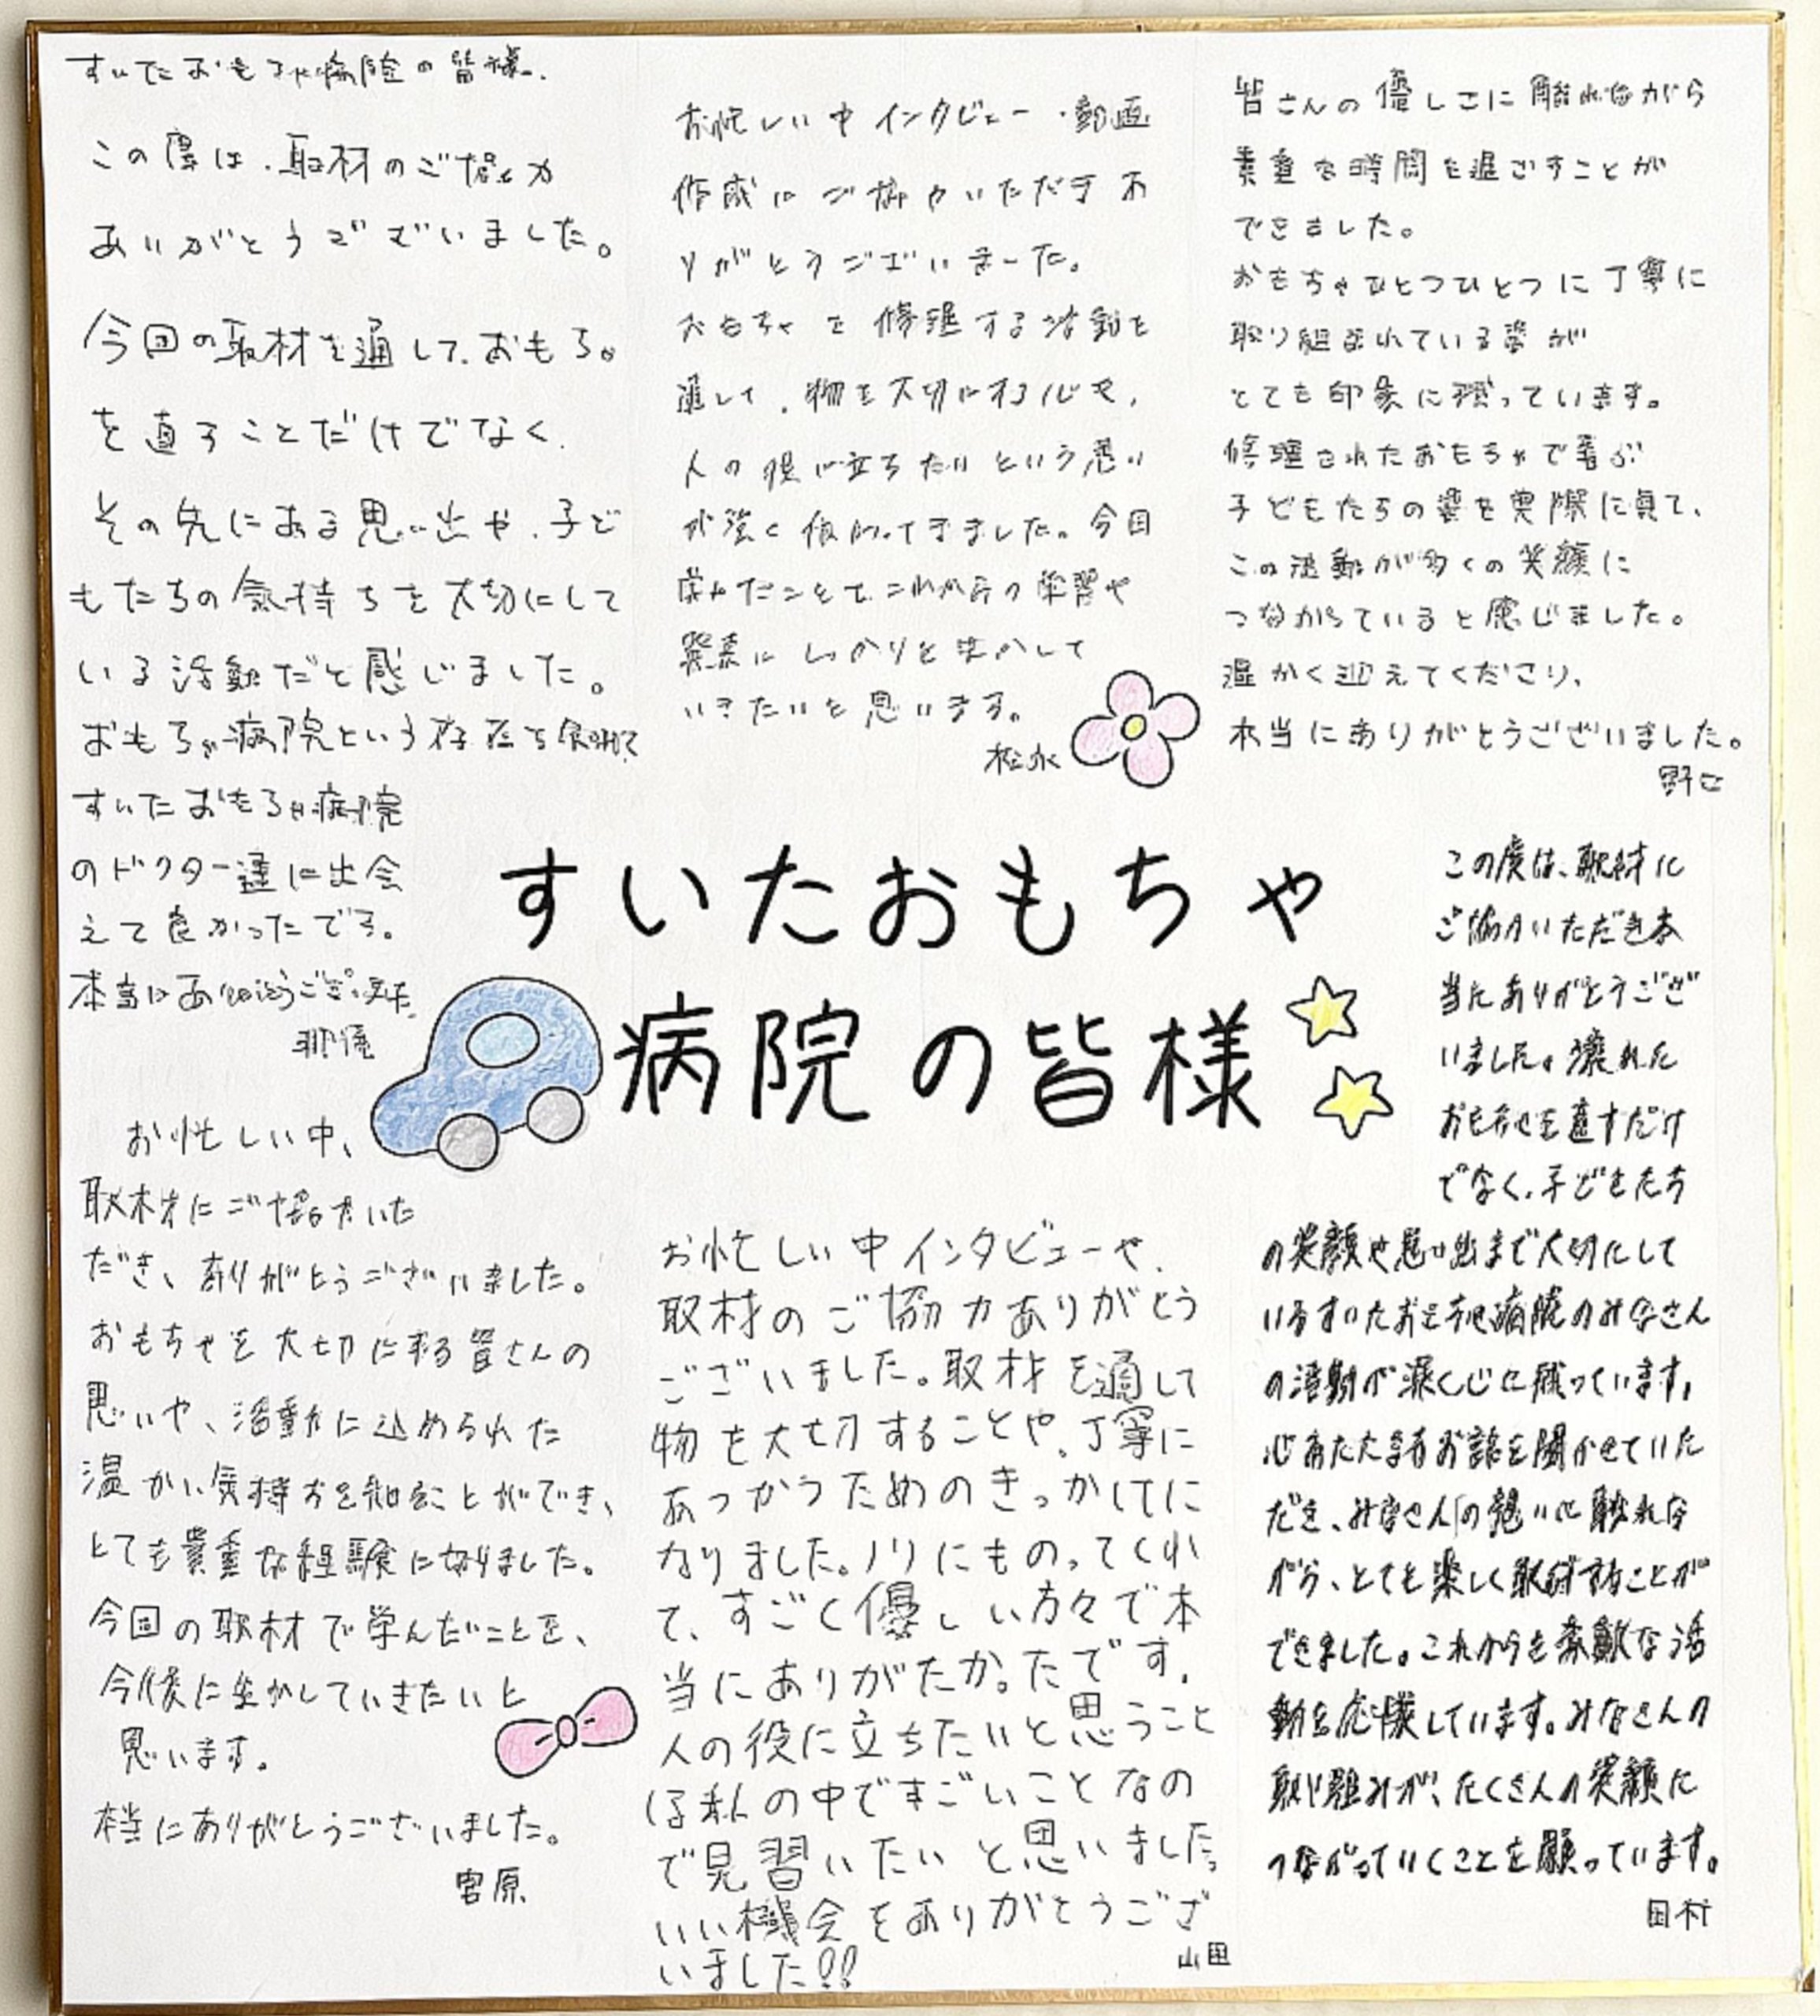 すいたおもちゃ病院の皆様.
この度は、取材のご協力
ありがとうございました。
今回の取材を通して、おもちゃ
を直すことだけでなく、
その先にある思い出や、子ど
もたちの気持ちを大切にして
いる活動だと感じました。
おもちゃ病院という存在を
すいたおもちゃ病院
のドクター達に出会
えて良かったです。
本当にありがとうございました。
お忙しい中インタビュー・動画
作成にご協力いただきあ
りがとうございました。
おもちゃを修理する活動を
通して、物を大切にする心や、
人の役に立ちたいという思い
が強く伝わってきました。今回
学んだことを、これからの学習や
発表にしっかりと生かして
いきたいと思います。
松永
皆さんの優しさに触れながら
貴重な時間を過ごすことが
できました。
おもちゃひとつひとつに丁寧に
取り組まれている姿が
とても印象に残っています。
修理されたおもちゃで遊ぶ
子どもたちの姿を実際に見て、
この活動が多くの笑顔に
つながっていると感じました。
温かく迎えてくださり、
本当にありがとうございました。
野口
すいたおもちゃ
病院の皆様
お忙しい中、
取材にご協力いた
だき、ありがとうございました。
おもちゃを大切にする皆さんの
思いや、活動に込められた
温かい気持ちを知ることができ、
とても貴重な経験になりました。
今回の取材で学んだことを、
今後に生かしていきたいと
思います。
本当にありがとうございました。
宮原
お忙しい中インタビューや、
取材のご協力ありがとう
ございました。取材を通して
物を大切することや、丁寧に
あつかうためのきっかけに
なりました。ノリにものってくれ
て、すごく優しい方々で本
当にありがたかったです。
人の役に立ちたいと思うこと
は私の中ですごいことなの
で見習いたいと思いました。
いい機会をありがとうござ
いました!!
山田
この度は、取材に
ご協力いただき本
当にありがとうござ
いました。壊れた
おもちゃを直すだけ
でなく、子どもたち
の笑顔や思い出まで大切にして
いるすいたおもちゃ病院のみなさん
の活動が深く心に残っています。
心あたたまるお話を聞かせていた
だき、みなさんの想いに触れな
がら、とても楽しく取材することが
できました。これからも素敵な活
動を応援しています。みなさんの
取り組みが、たくさんの笑顔に
つながっていくことを願っています。
田村